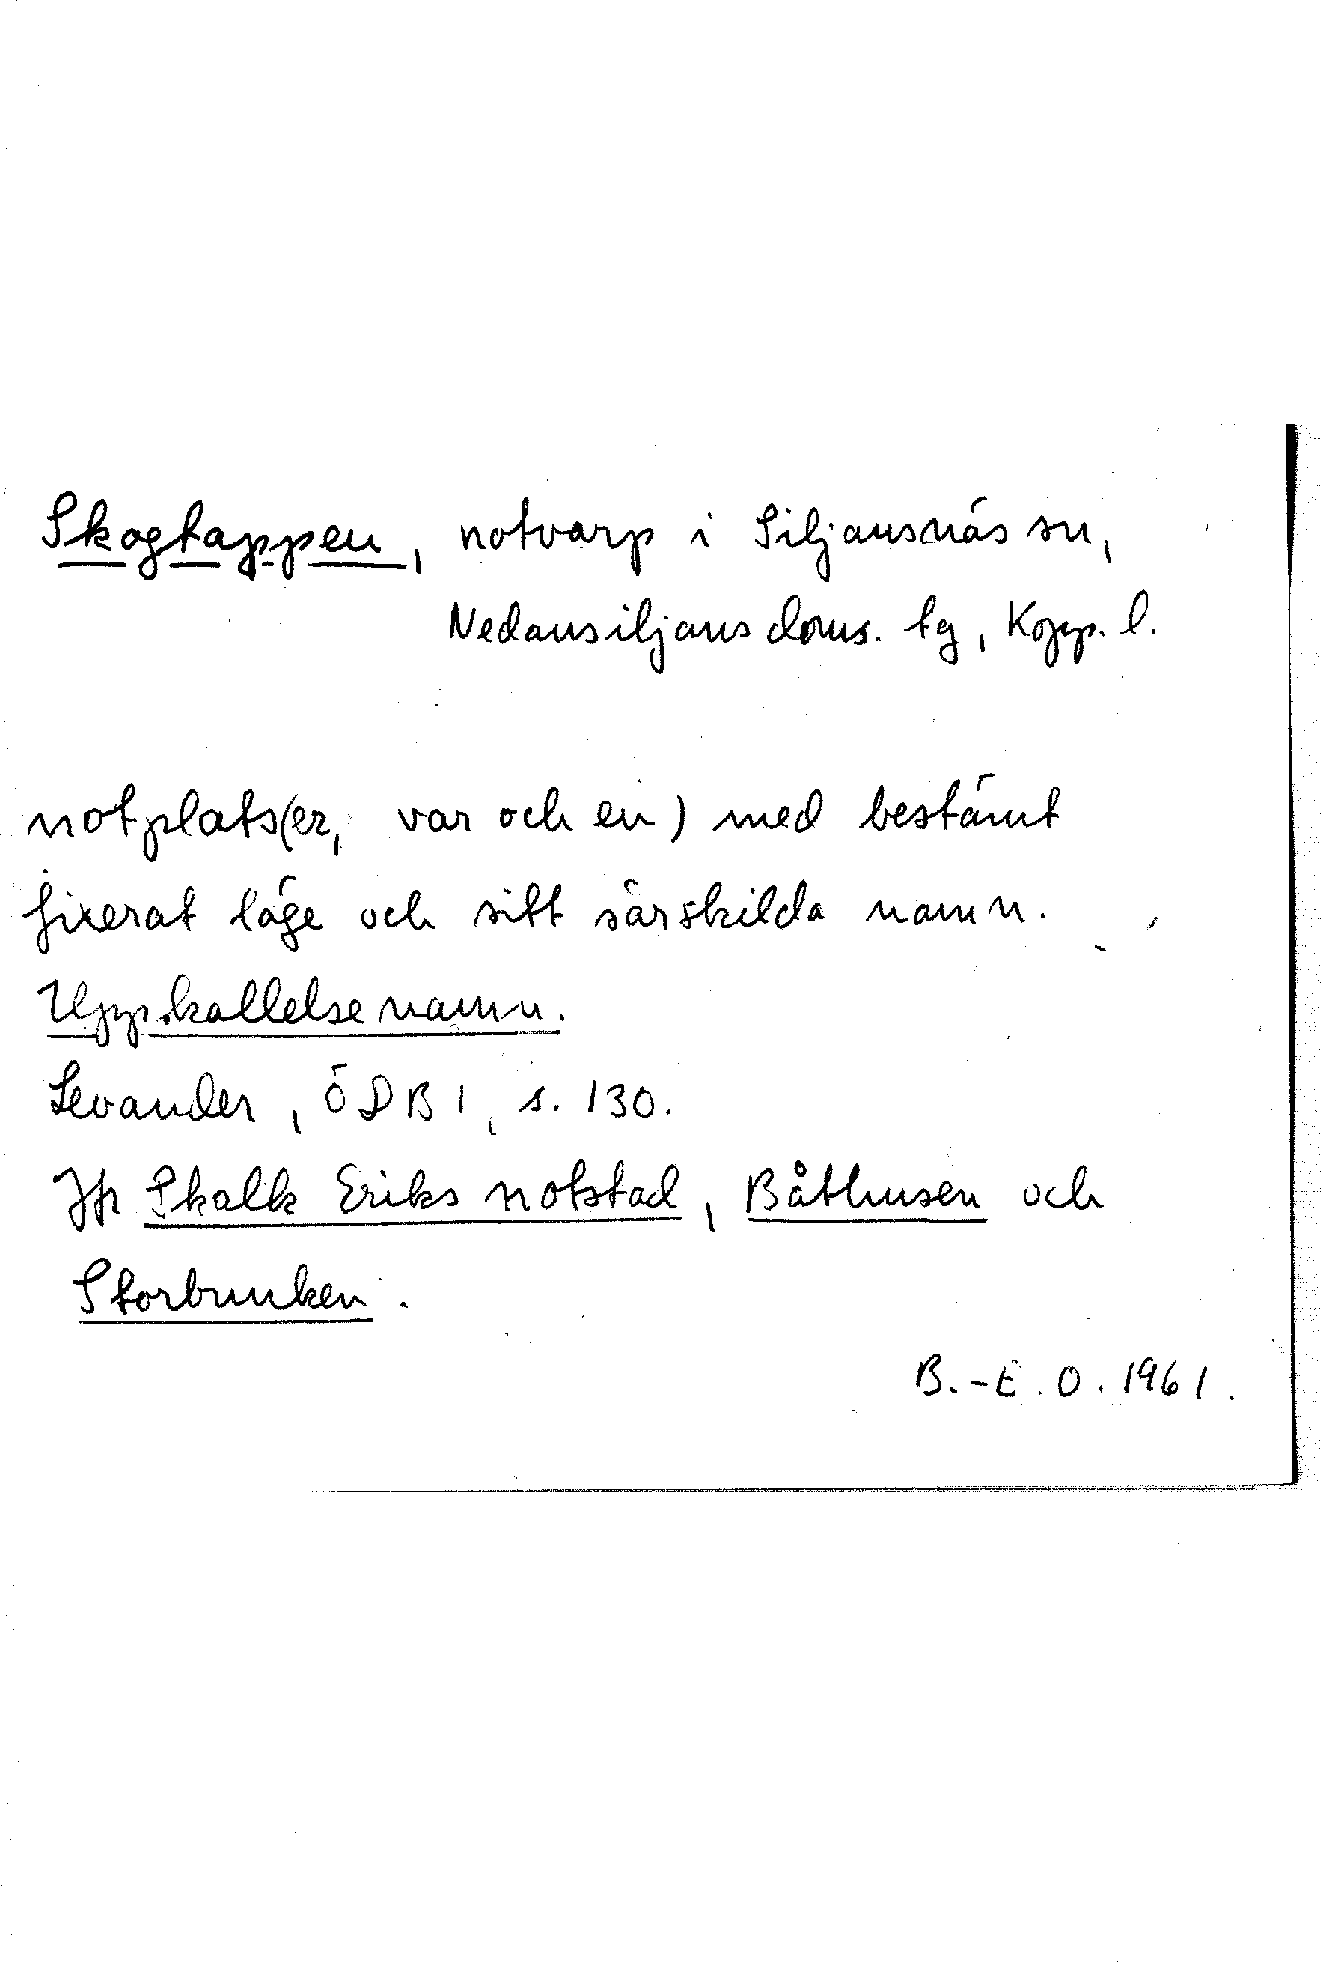 Skogtappen, notvarp i Siljansnäs sn,
Nedansiljans doms. tg, Kopp. l.
notplats(er, var och en) med bestämt
fixerat läge och sitt särskilda namn.
Uppkallelsenamn.
Levander, ÖDB 1, s. 130.
Jfr Skalk Eriks notstad, Båthusen och
Storbunken.
B.-E. O. 1961.